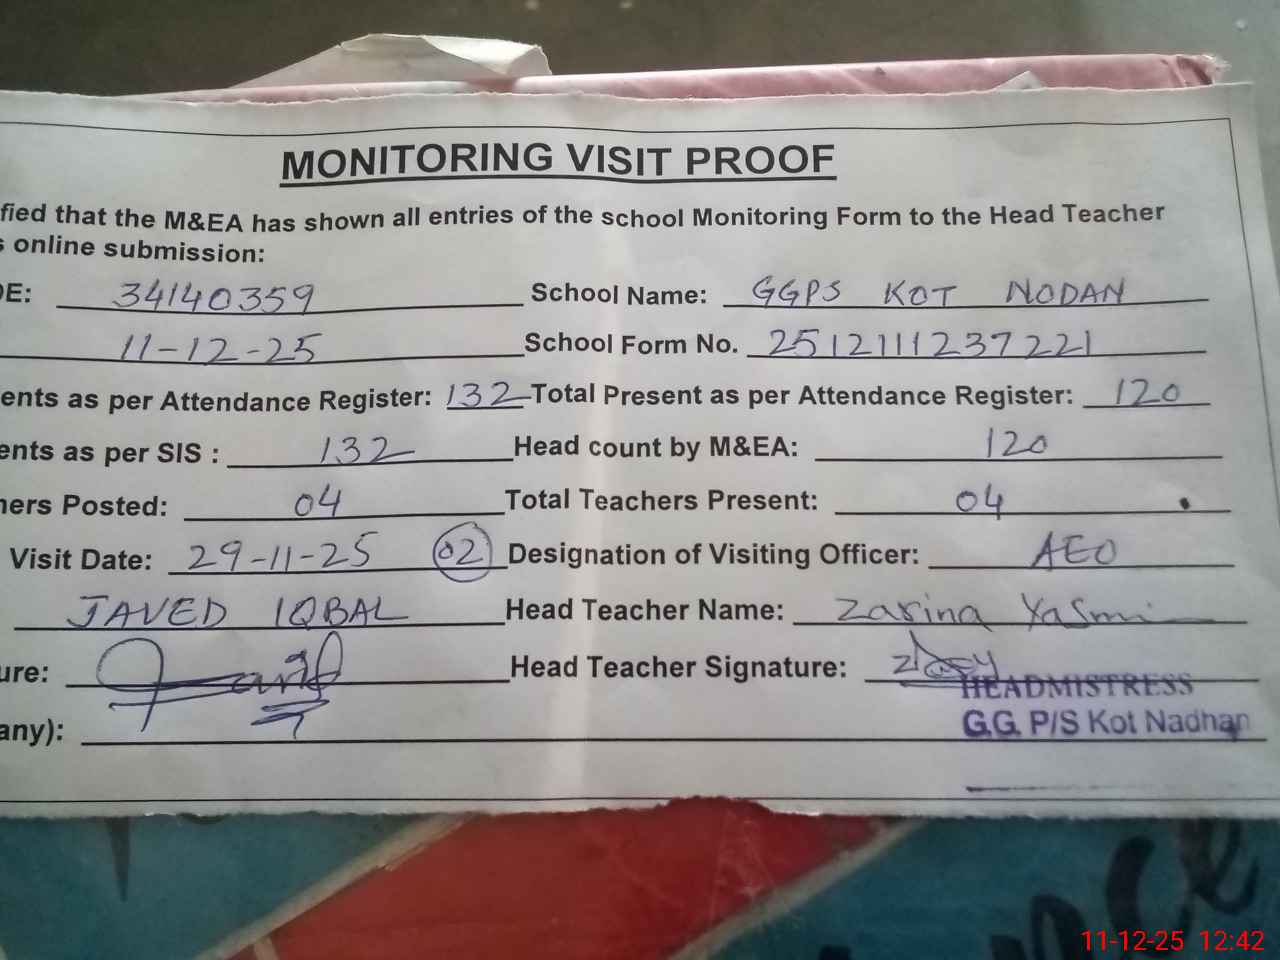 MONITORING VISIT PROOF
fied that the M&EA has shown all entries of the school Monitoring Form to the Head Teacher
s online submission:
DE: 34140359 School Name: GGPS KOT NODAN
11-12-25 School Form No. 2512111237221
ents as per Attendance Register: 132 Total Present as per Attendance Register: 120
ents as per SIS : 132 Head count by M&EA: 120
hers Posted: 04 Total Teachers Present: 04
Visit Date: 29-11-25 02 Designation of Visiting Officer: AEO
JAVED IQBAL Head Teacher Name: Zarina Yasmi
ure: Head Teacher Signature:
HEADMISTRESS
any): G.G. P/S Kot Nadhan
11-12-25 12:42